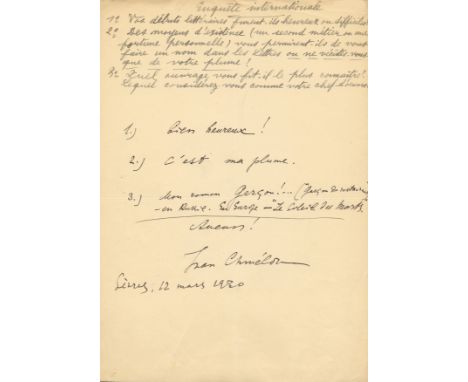 Enquête internationale
1º Vos débuts littéraires furent-ils heureux ou difficiles
2º Des moyens d'existence (un second métier ou une
fortune personnelle) vous permirent-ils de vous
faire un nom dans les lettres ou ne vécûtes-vous
que de votre plume !
3º Quel ouvrage vous fit-il le plus connaître ?
Lequel considérez vous comme votre chef d'œuvre
1.) bien heureux !
2.) C'est ma plume.
3.) Mon roman Garçon !... (Garçon de restaurant)
- en Russie. En Europe - "Le Soleil des Morts"
Aucun !
Ivan Chmélov
Sèvres, 12 mars 1930